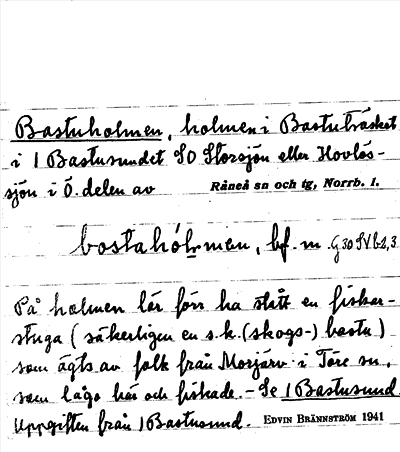 Bastuholmen, holmen i Bastuträsket
i 1 Bastusundet SO Storsjön eller Hovlös-
sjön i Ö. delen av Råneå sn och tg, Norrb. l.
bostahó̤lmen, bf. m. G30SVb2,3
På holmen lär förr ha stått en fiskar-
stuga (säkerligen en s.k. (skogs-) bastu)
som ägts av folk från Morjärv i Töre sn,
som lågo här och fiskade. - Se 1 Bastusund.
Uppgiften från 1 Bastusund. EDVIN BRÄNNSTRÖM 1941